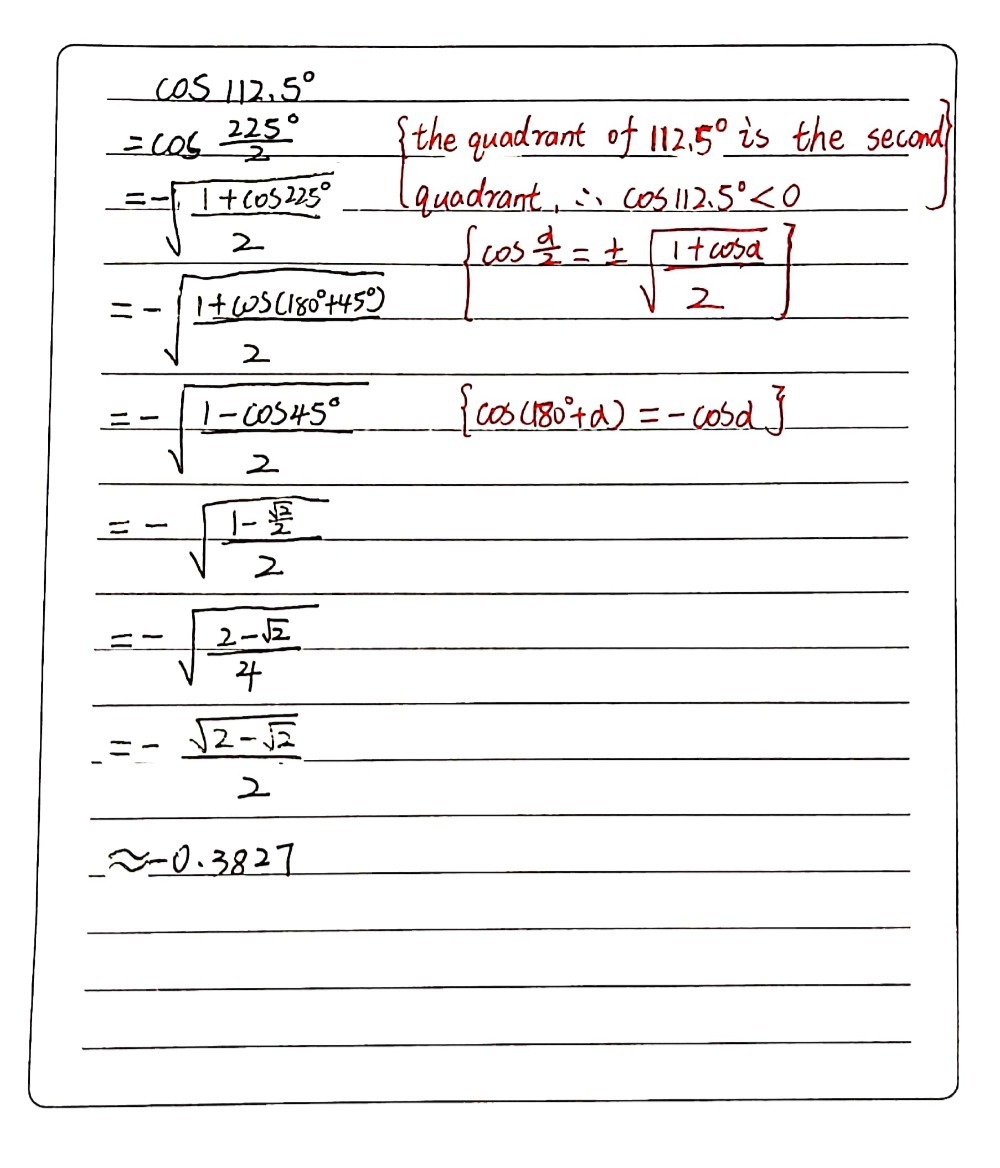 cos 112.5°
= cos 225°/2 {the quadrant of 112.5° is the second
= -√((1+cos225°)/2) quadrant, ∴ cos112.5°<0}
{cos α/2 = ± √((1+cosα)/2)}
= -√((1+cos(180°+45°))/2)
= -√((1-cos45°)/2) {cos(180°+α) = -cosα}
= -√((1-√2/2)/2)
= -√((2-√2)/4)
= -√(2-√2)/2
≈-0.3827